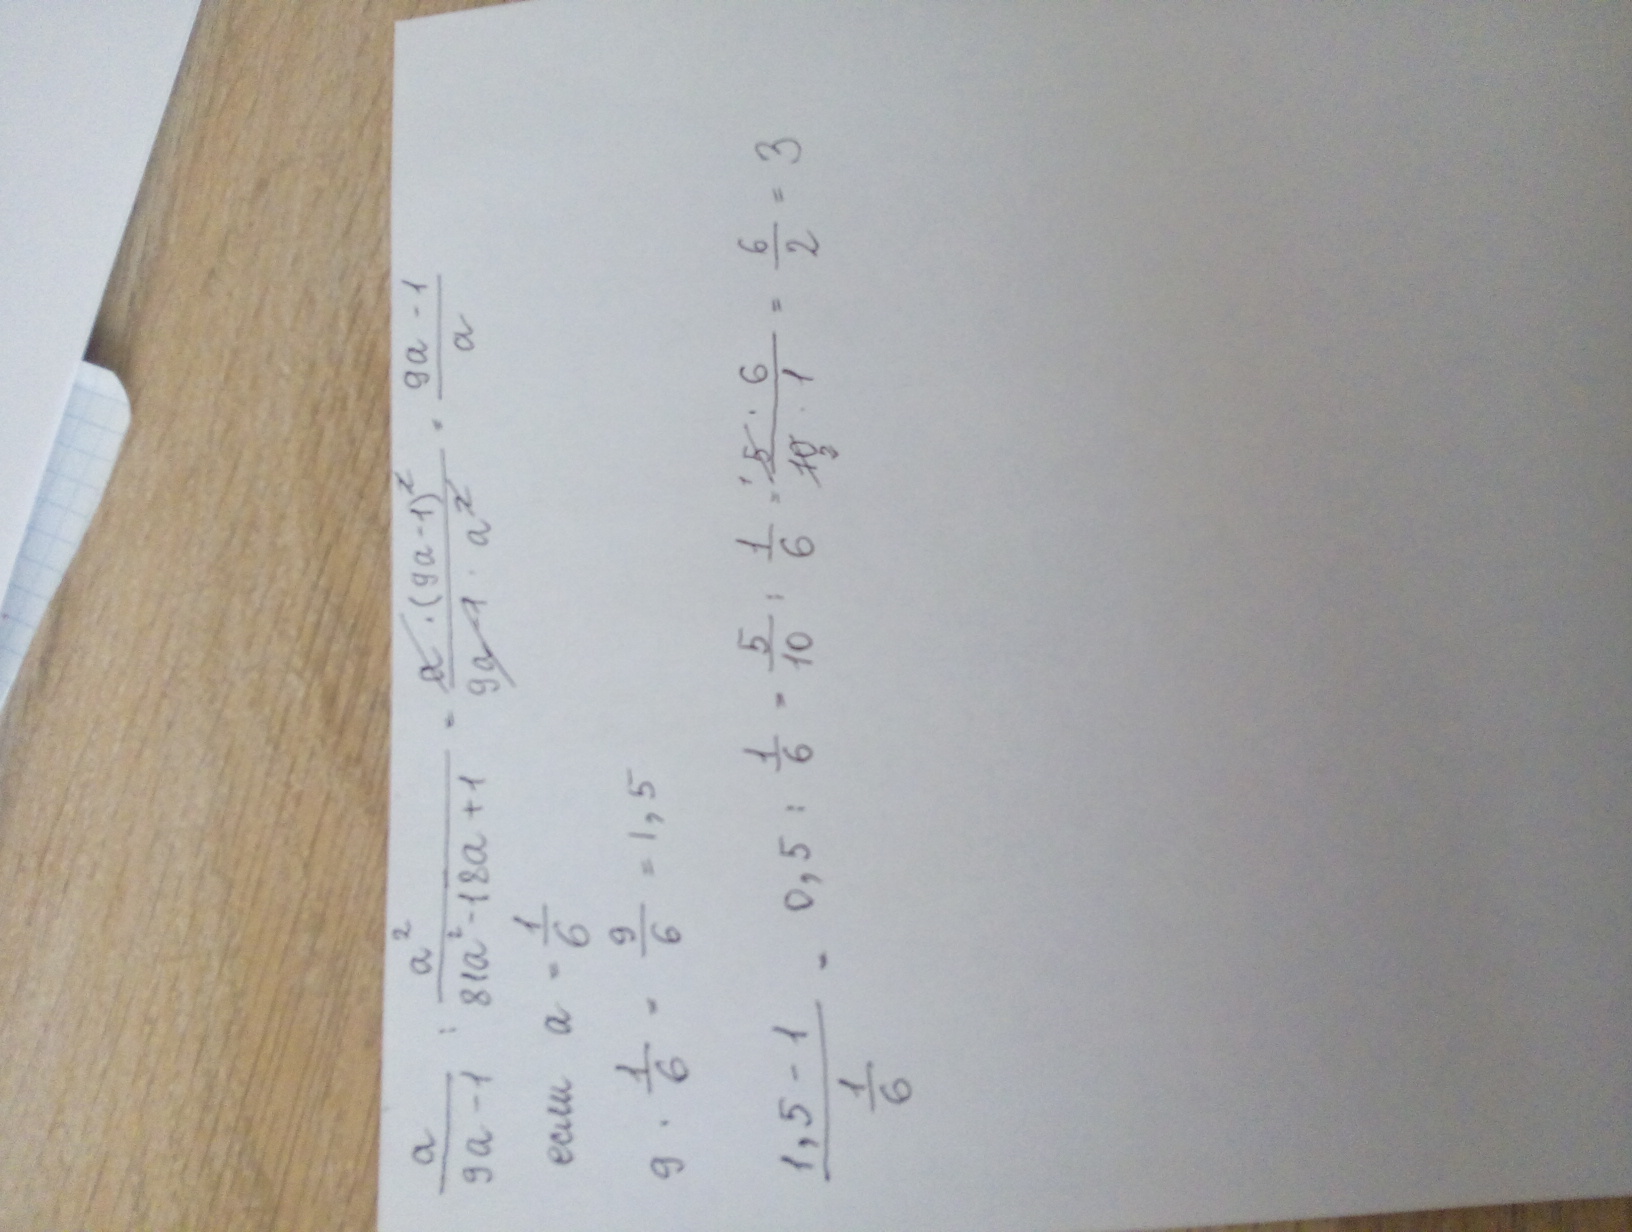 a/(9a-1) : a²/(81a²-18a+1) = a·(9a-1)²/(9a-1·a²) = (9a-1)/a
если a = 1/6
9 · 1/6 = 9/6 = 1,5
(1,5-1)/(1/6) = 0,5 : 1/6 = 5/10 : 1/6 = (5·6)/(10·1) = 6/2 = 3